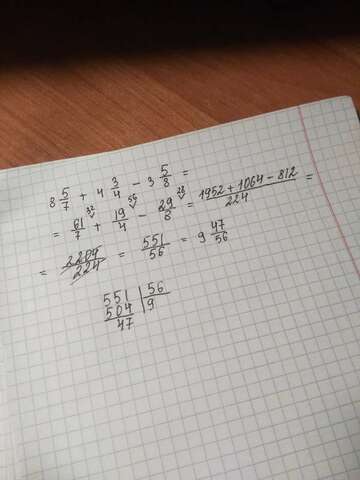 8 5/7 + 4 3/4 - 3 5/8 =
= 61/7 32 + 19/4 56 - 29/8 28 = 1952 + 1064 - 812 / 224 =
= 2204/224 = 551/56 = 9 47/56
551 | 56
504 | 9
47